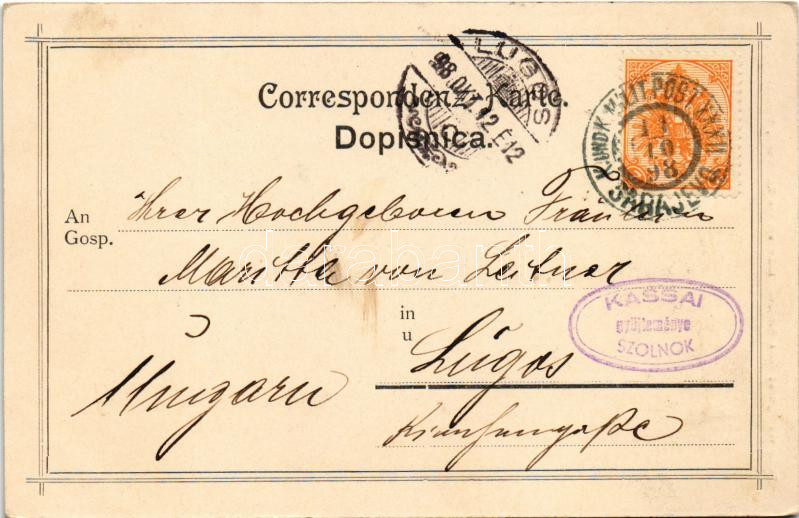 LUGOS
98 OKT. 12 E12
Correspondenz-Karte.
Dopisnica.
K. UND K. MILIT. POST XXXVII
11
10
98
SARAJEVO
An
Gosp.
Ihrer Hochgeboren Fräulein
Maritta von Leitner
in
u
Lúgos
Ungarn
KASSAI
gyűjteménye
SZOLNOK
darabanth